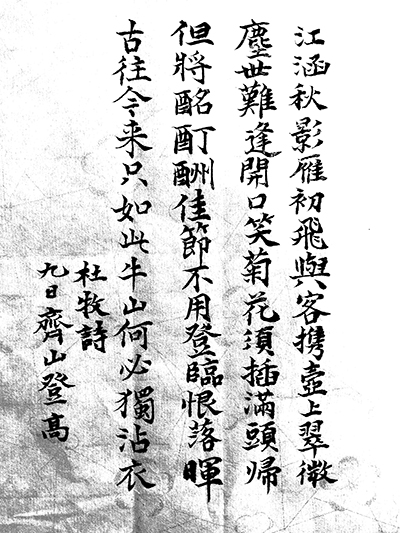 江涵秋影雁初飛與客携壺上翠微
塵世難逢開口笑菊花須插滿頭歸
但將酩酊酬佳節不用登臨恨落暉
古往今来只如此牛山何必獨沾衣
杜牧詩
九日齊山登高